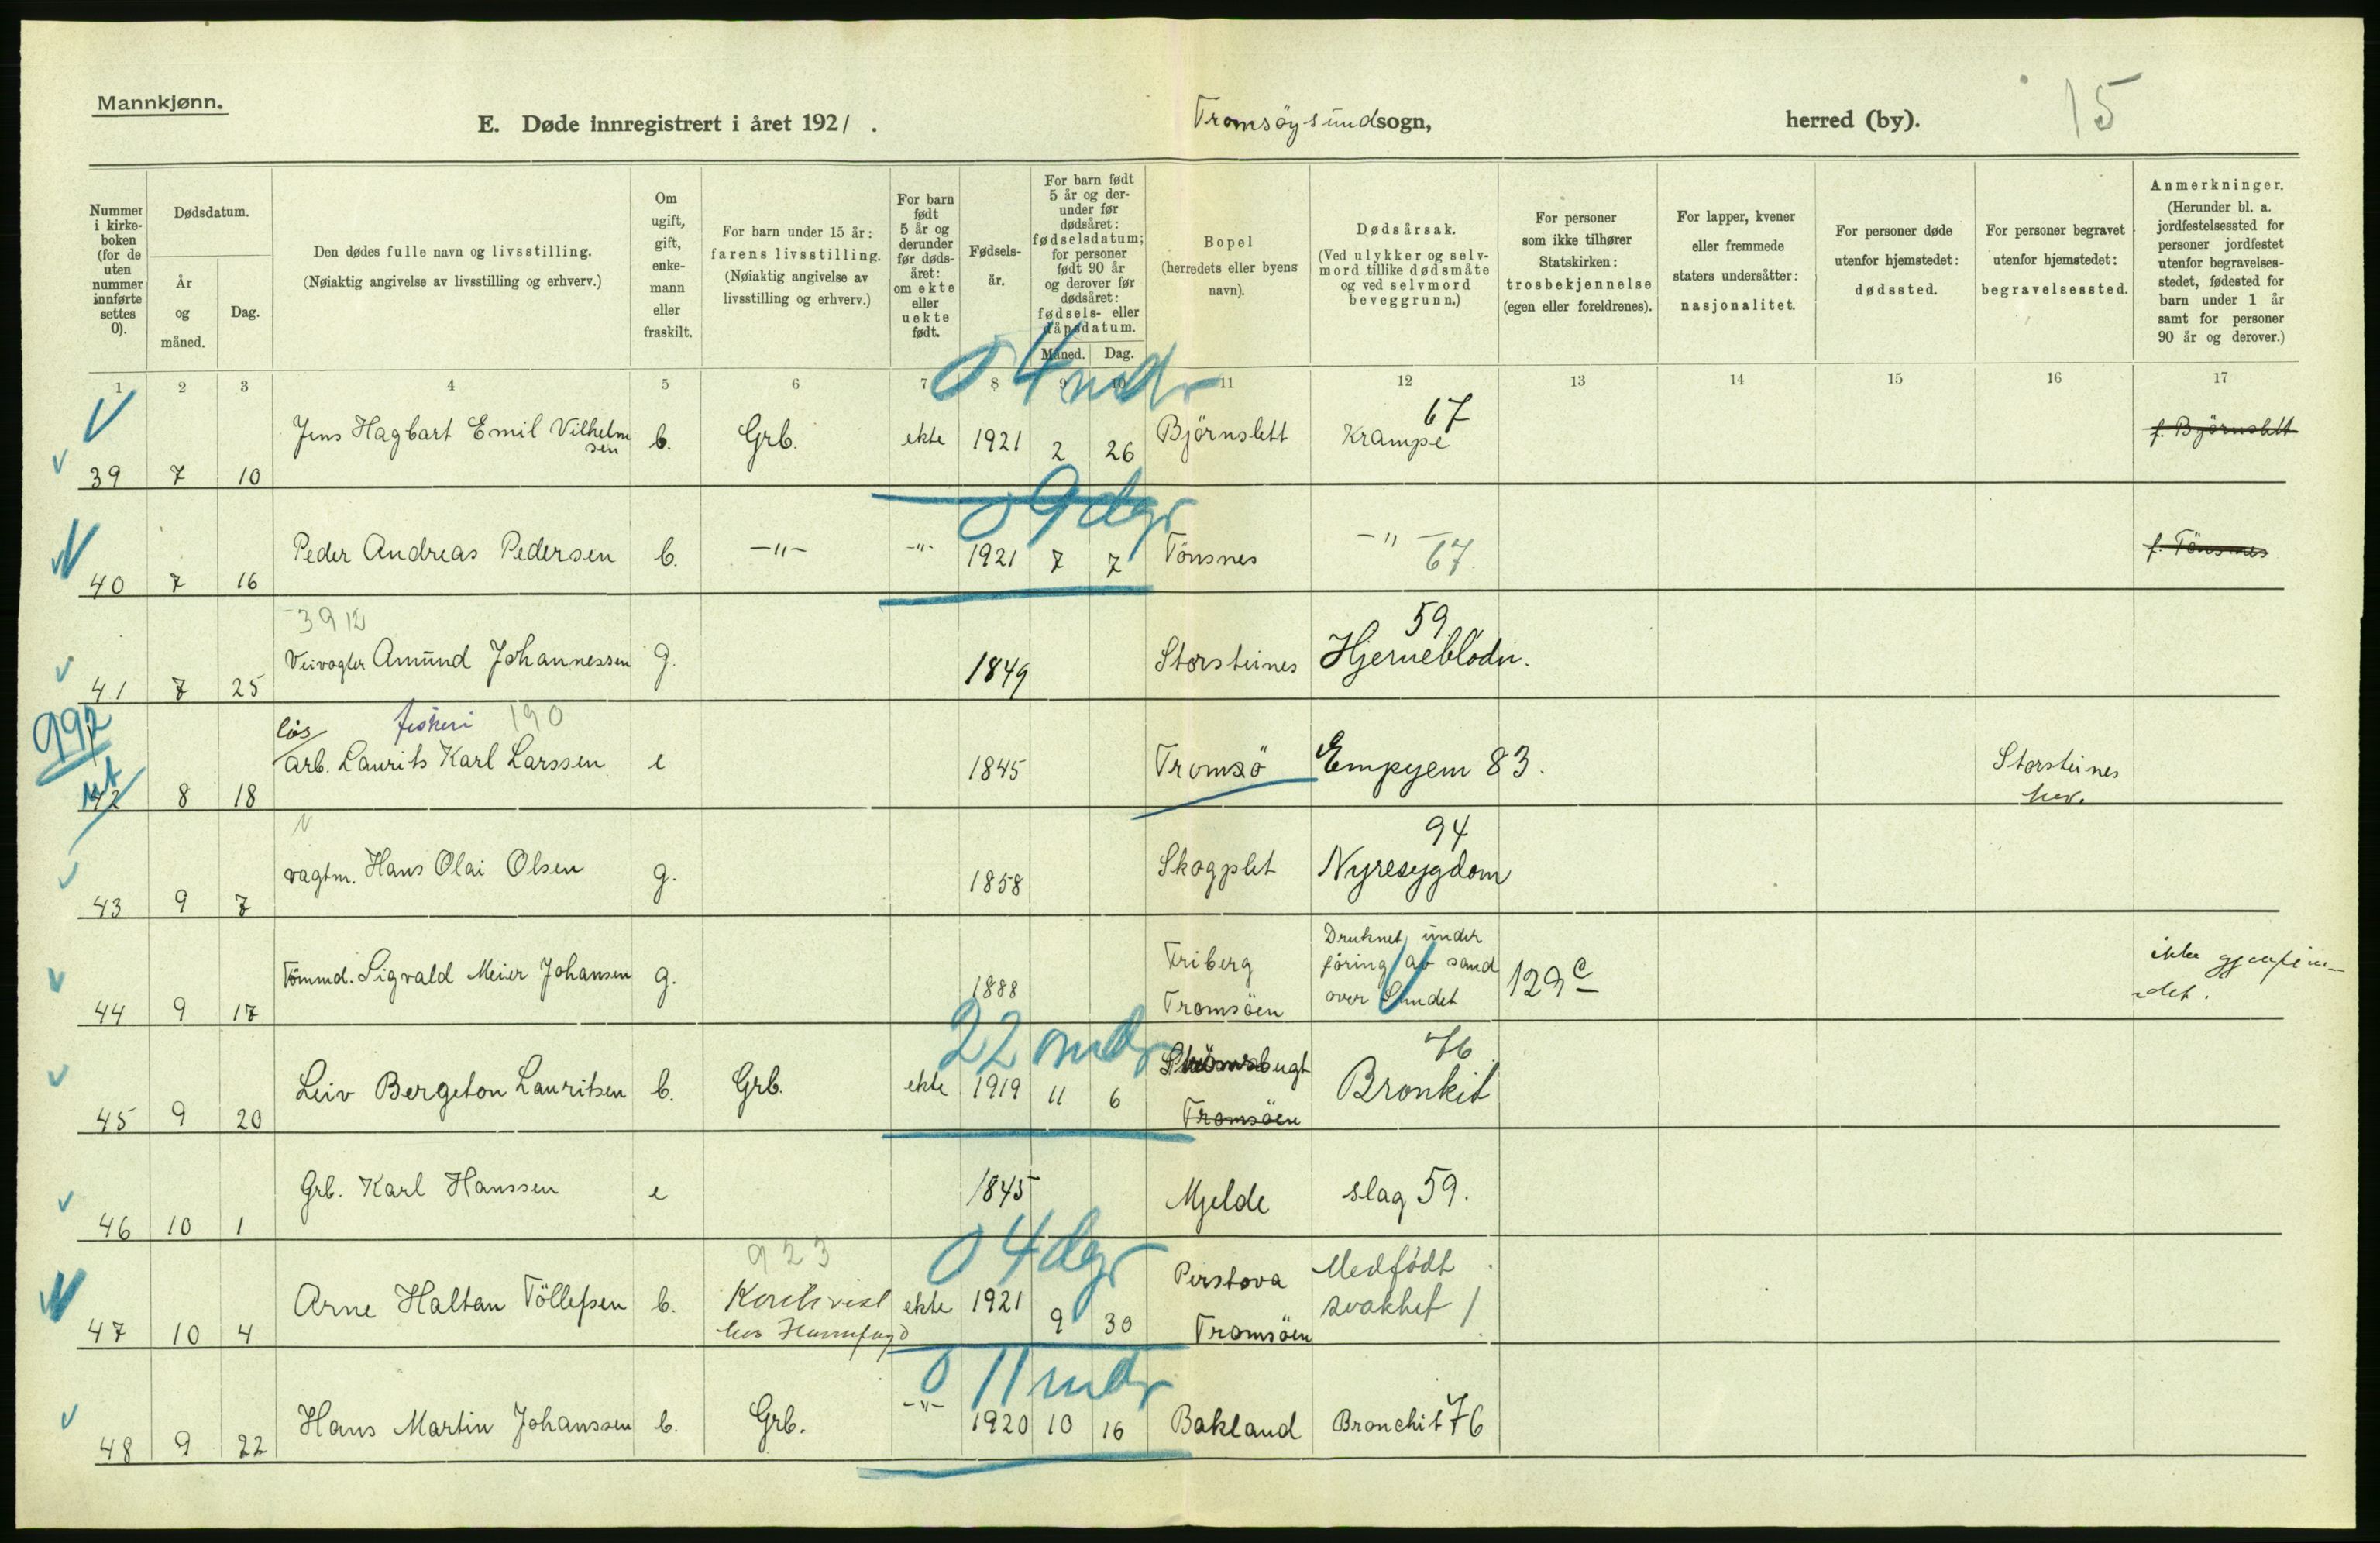 Mannkjønn.
E. Døde innregistrert i året 1921. Tromsöysund sogn, herred (by). 15
Nummer i kirkeboken (for de uten nummer innførte settes 0).
Dødsdatum.
År og måned.
Dag.
Den dødes fulle navn og livsstilling.
(Nøiaktig angivelse av livsstilling og erhverv.)
Om ugift, gift, enkemann eller fraskilt.
For barn under 15 år: farens livsstilling.
(Nøiaktig angivelse av livsstilling og erhverv.)
For barn født 5 år og derunder før dødsåret: om ekte eller uekte født.
Fødselsår.
For barn født 5 år og derunder før dødsåret: fødselsdatum; for personer født 90 år og derover før dødsåret: fødsels- eller dåpsdatum.
Måned. Dag.
Bopel (herredets eller byens navn).
Dødsårsak.
(Ved ulykker og selvmord tillike dødsmåte og ved selvmord beveggrunn.)
For personer som ikke tilhører Statskirken: trosbekjennelse (egen eller foreldrenes).
For lapper, kvener eller fremmede staters undersåtter: nasjonalitet.
For personer døde utenfor hjemstedet: dødssted.
For personer begravet utenfor hjemstedet: begravelsessted.
Anmerkninger.
(Herunder bl. a. jordfestelsessted for personer jordfestet utenfor begravelsesstedet, fødested for barn under 1 år samt for personer 90 år og derover.)
1 2 3 4 5 6 7 8 9 10 11 12 13 14 15 16 17
0 4 mdr
39 7 10 Jens Hagbart Emil Vilhelmsen b. Grb. ekte 1921 2 26 Björnslett Krampe 67 f. Björnslett
0 9 dgr
40 7 16 Peder Andreas Pedersen b. -"- -"- 1921 7 7 Tönsnes -"- 67. f. Tönsnes
3912
41 7 25 Veivogter Amund Johannessen g. 1849 Storsteines Hjerneblödn. 59
992 ut
fiskeri 190
42 8 18 lös arb. Laurits Karl Larssen e 1845 Tromsö Empyem 83. Storsteines
43 9 7 vagtm. Hans Olai Olsen g. 1858 Skogplet Nyresygdom 94
44 9 17 Tömmd. Sigvald Meier Johansen g. 1888 Friberg Tromsöen Druknet under föring av sand over Sundet 129 c ikke
22 mdr
45 9 20 Leiv Bergeton Lauritsen b. Grb. ekte 1919 11 6 Tromsöen Bronkit 76
46 10 1 Grb. Karl Hanssen e 1845 Mjelde slag 59.
0 4 dgr
923
47 10 4 Arne Haltan Töllefsen b. ekte 1921 9 30 Perstova Tromsöen Medfödt svakhet 1
0 11 mdr
48 9 22 Hans Martin Johanssen b. Grb. -"- 1920 10 16 Bakland Bronchit 76